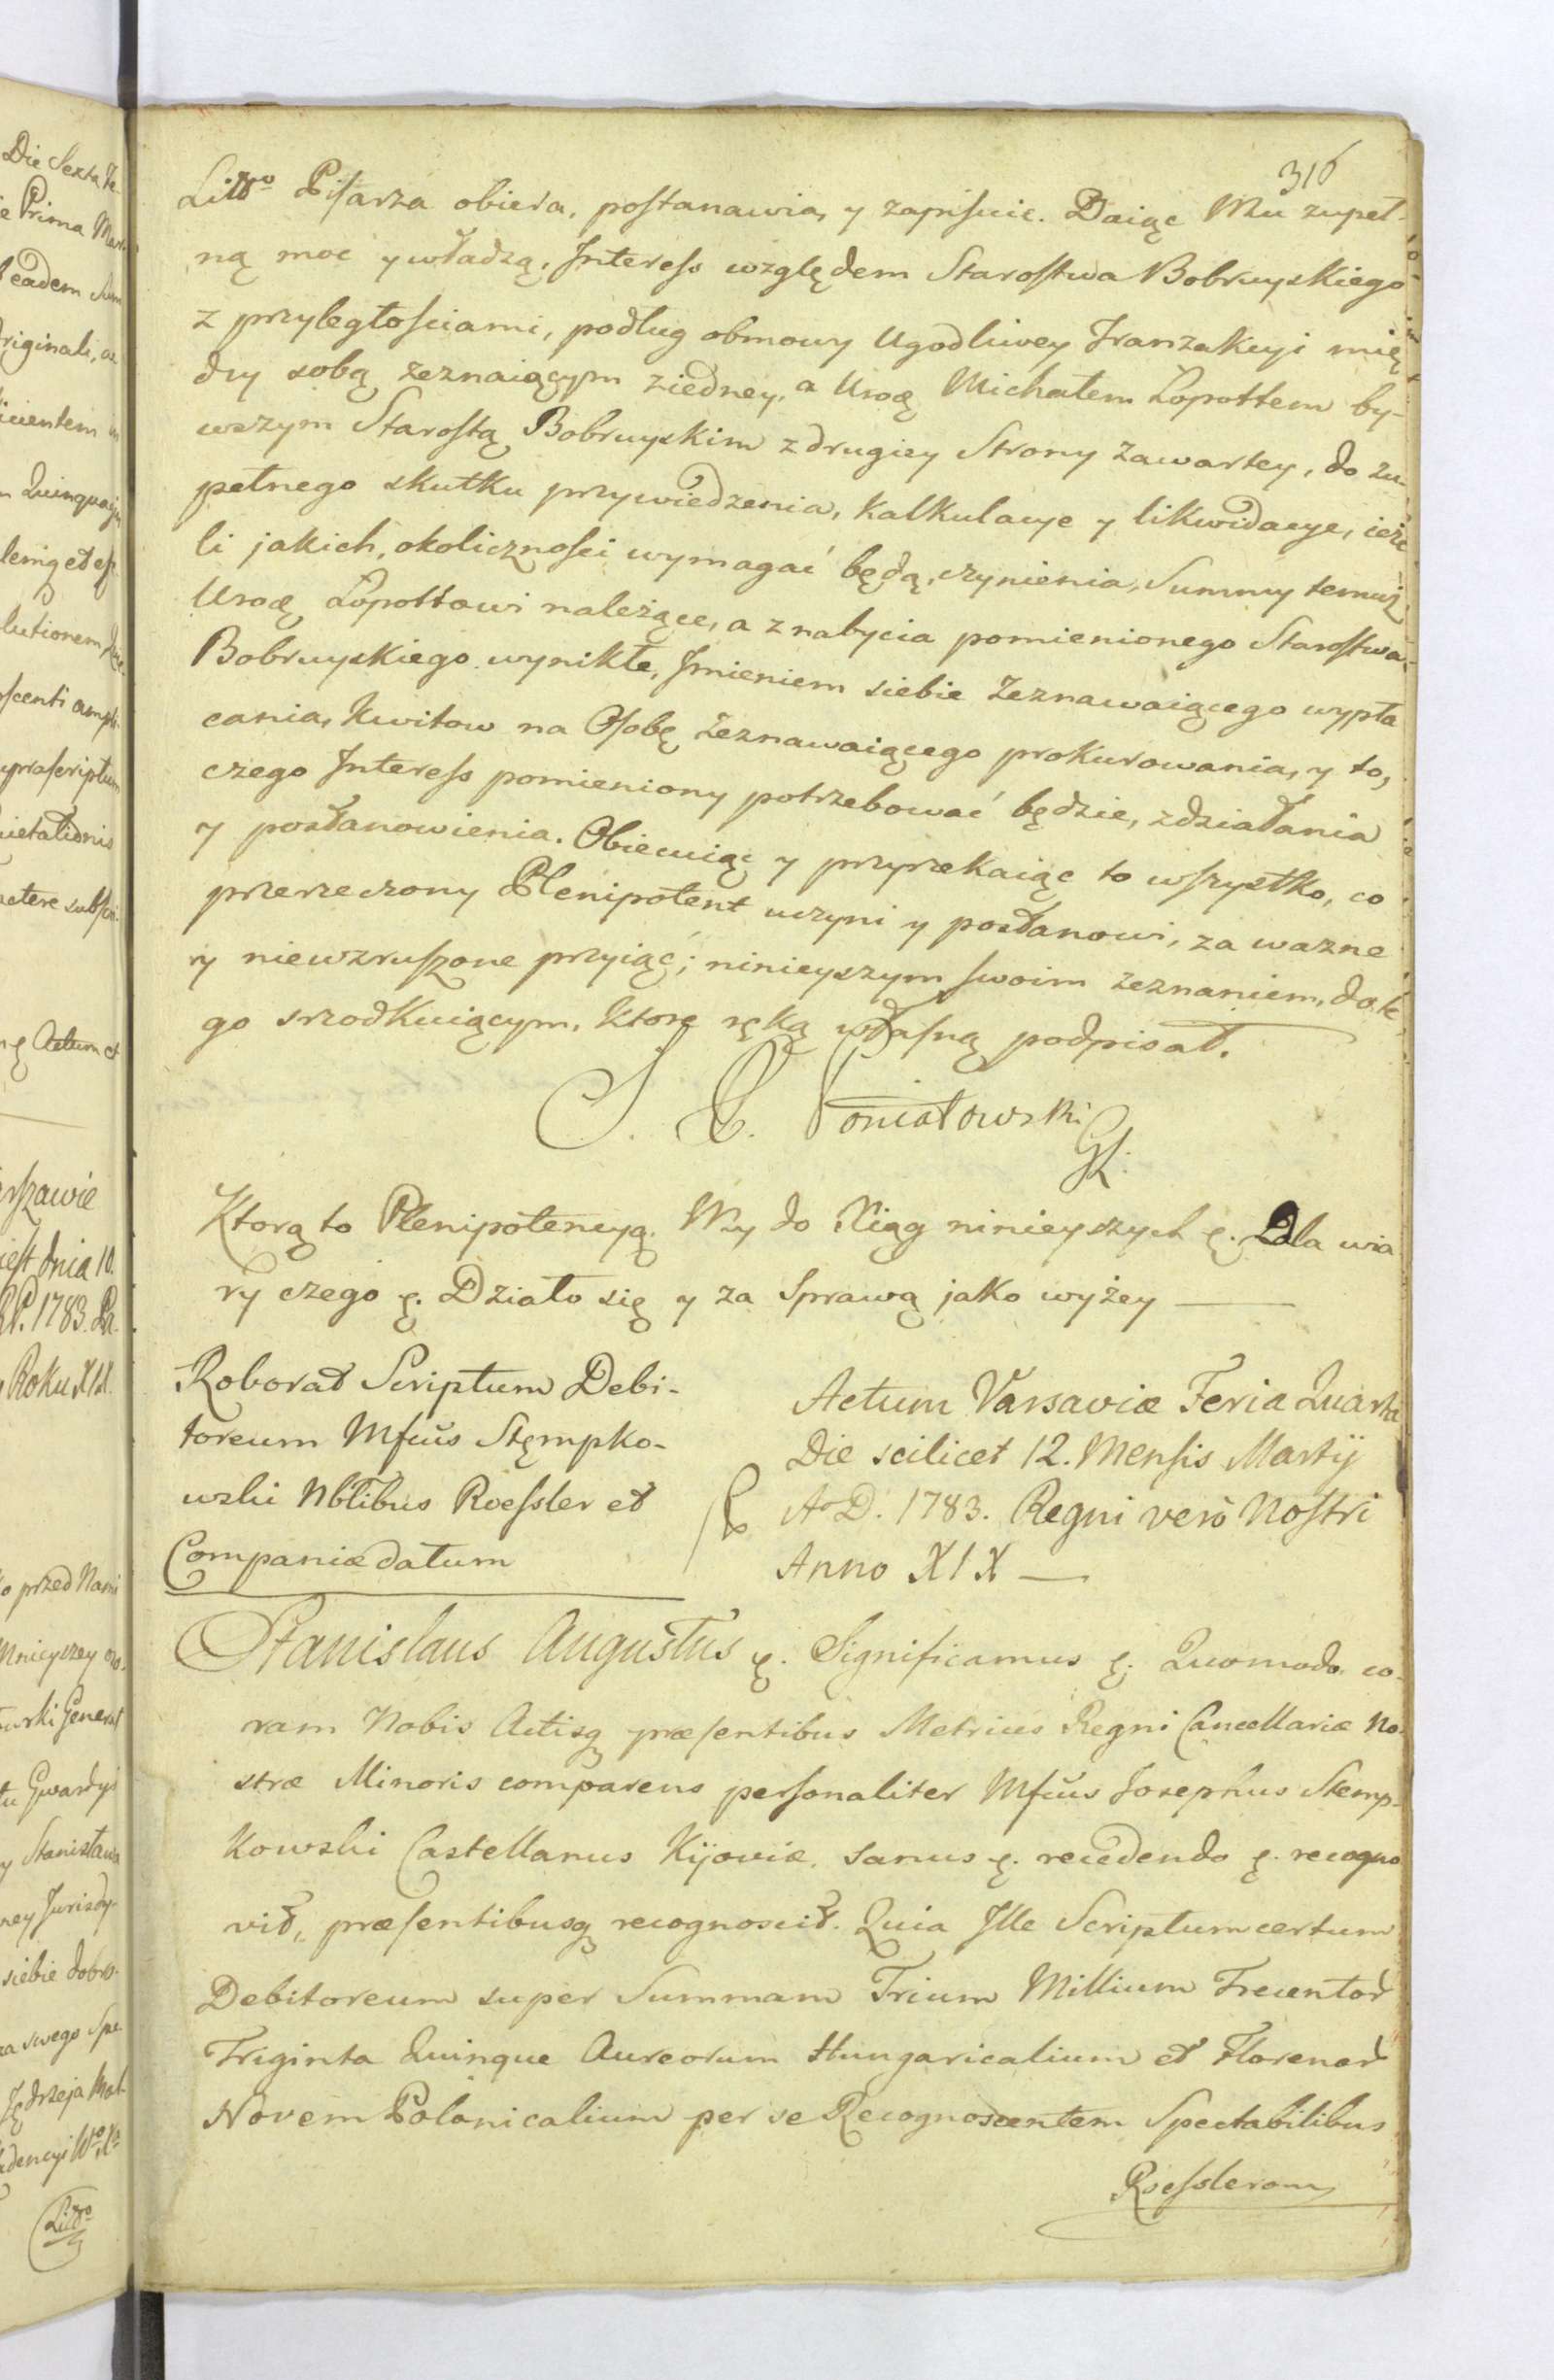 Die Sexta
Prima
eadem
originali,
Quinquagin
lutionem
Actum et
dnia 10.
1783.
Roku XIX.
przed Nami
Gwardyi
Stanisława
siebie dobro-
swego
Littwo
316
Littwo Pisarza obiera, postanawia, y zapisuie. Daiąc Mu zupeł-
ną moc y władzą, Interess względem Starostwa Bobruyskiego
z przyległościami, podług obmowy Ugodliwey Tranzakcyi mię
dzy sobą zeznaiącym ziedney, a Urodę Michałem Łopottem by-
wszym Starostą Bobruyskim z drugiey Strony zawartey, do zu-
pełnego skutku przywiedzenia, kalkulacye y likwidacye, ieże
li jakich, okoliczności wymagać będą, czynienia, Summy temuż
Urodę Łopottowi należące, a z nabycia pomienionego Starostwa
Bobruyskiego wynikłe, Jmieniem siebie Zeznawaiącego wypła
cania, Kwitow na Osobę Zeznawaiącego prokurowania, y to,
czego Interess pomieniony potrzebować będzie, zdziałania
y postanowienia. Obiecuiąc y przyrzekaiąc to wszystko, co
przerzeczony Plenipotent uczyni y postanowi, za wazne
y niewzruszone przyiąć; ninieyszym swoim zeznaniem, do te
go srzodkuiącym, ktore ręką własną podpisał.
S. X. Poniatowski
Ktorą to Plenipotencyą. My do Xiąg ninieyszych ę. Dla wia
ry czego ę. Działo się y za Sprawą jako wyżey —
Roborat Scriptum Debi-
toreum Mfcus Stępko-
wski Nbltibus Roessler et
Companiæ datum
Actum Varsaviæ Feria Quarta
Die scilicet 12. Mensis Martij
Ao D. 1783. Regni verò Nostri
Anno XIX —
Stanislaus Augustus ę. Significamus ę. Quomodo co-
ram Nobis Actisq præsentibus Metrices Regni Cancellariæ No-
stræ Minoris comparens personaliter Mfcus Josephus Stemp-
kowski Castellanus Kijoviæ. sanus ę. recedendo ę. recogno
vit, præsentibusq recognoscit. Quia Ille Scriptum certum
Debitoreum super Summam Trium Millium Trecentor
Triginta Quinque Aureorum Hungaricalium et Florenor
Novem Polonicalium per se Recognoscentem Spectabilibus
Roesslerom